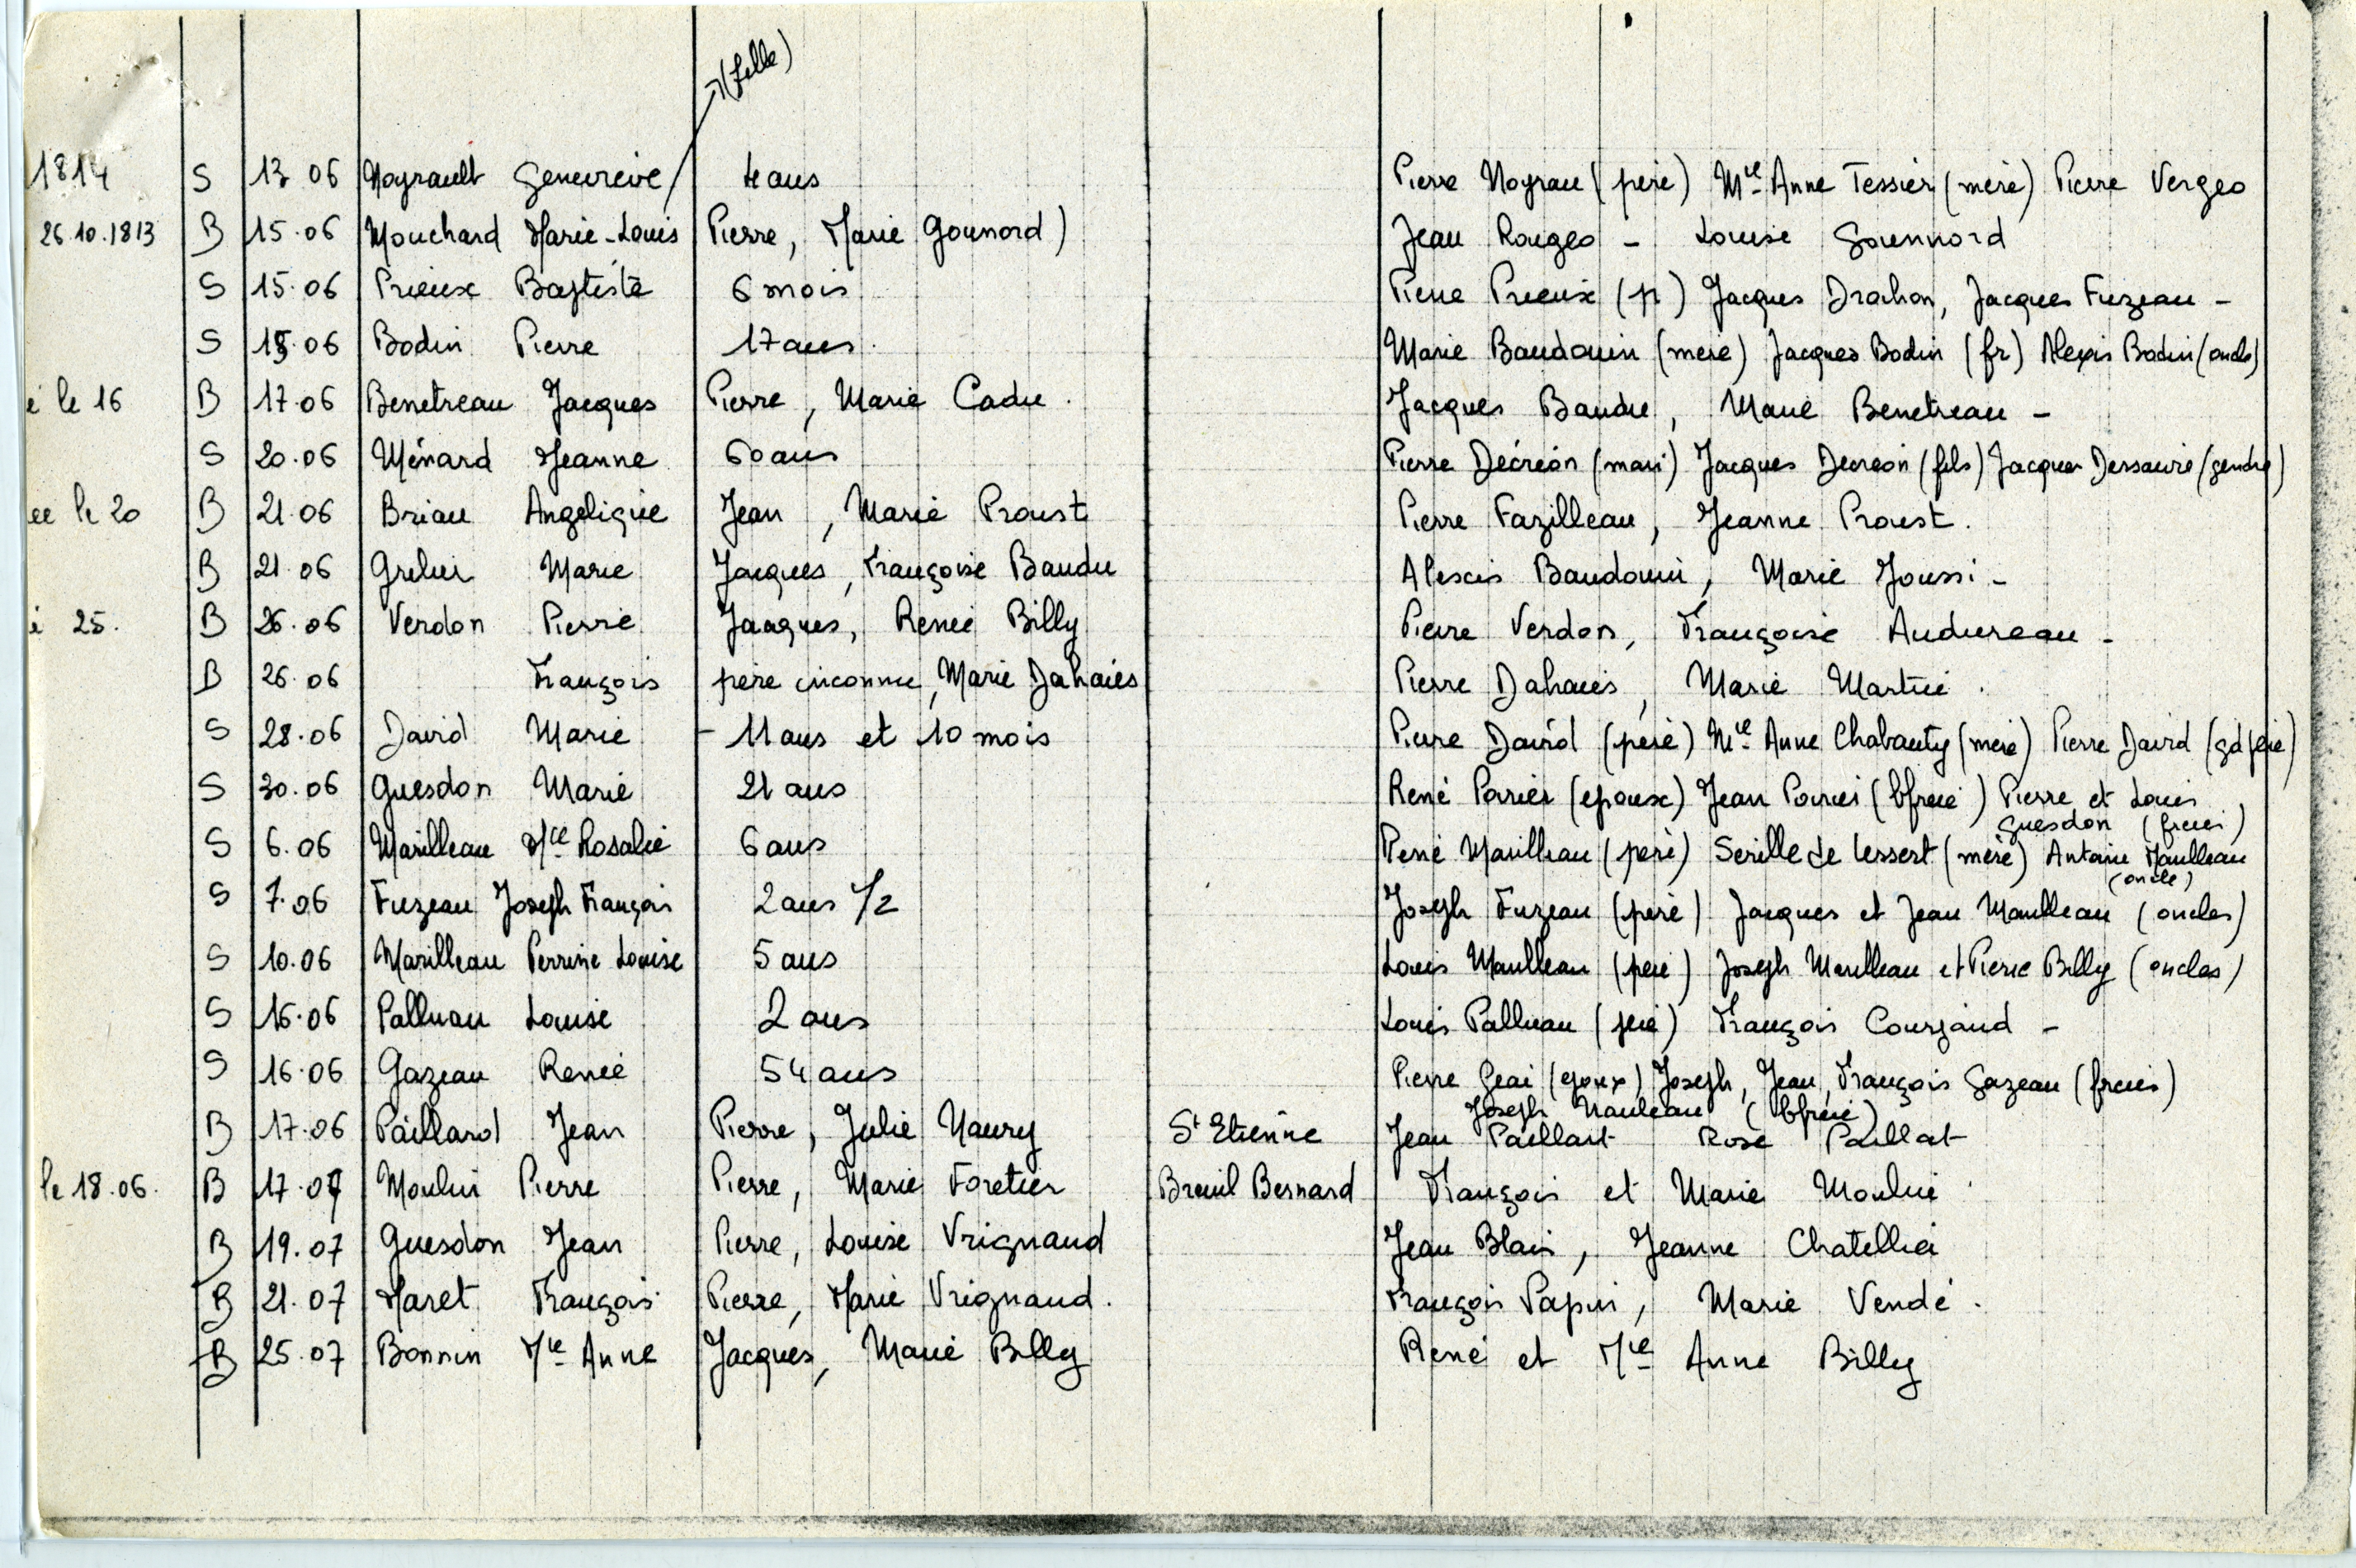 (fille)
1814 S 13 06 Noyrault Genevieve 4 ans Pierre Noyrau (père) Mie Anne Tessier (mère) Pierre Vergeo
26.10.1813 B 15.06 Mouchard Marie-Louis Pierre, Marie Gounord) Jean Rougeo - Louise Gounnord
S 15.06 Prieux Baptiste 6 mois Pierre Prieux (p) Jacques Drochon, Jacques Fuzeau -
S 15.06 Bodin Pierre 17 ans. Marie Baudouin (mère) Jacques Bodin (fr) Alexis Bodin (oncle)
é le 16 B 17.06 Benetreau Jacques Pierre, Marie Cadu. Jacques Baudu, Marie Benetreau -
S 20.06 Ménard Jeanne 60 ans Pierre Décréon (mari) Jacques Decreon (fils) Jacques Dessaivre (gendre)
ee le 20 B 21.06 Briau Angelique Jean, Marie Proust Pierre Fazilleau, Jeanne Proust.
B 21.06 Grelier Marie Jacques, Françoise Baudu Alexis Baudouin, Marie Joussi -
é 25. B 26.06 Verdon Pierre Jacques, Renée Billy Pierre Verdon, Françoise Audureau -
B 26.06 François père inconnu, Marie Dahaies Pierre Dahaies, Marie Martin.
S 28.06 David Marie - 11 ans et 10 mois Pierre David (père) Mie Anne Chabauty (mère) Pierre David (gd père)
S 30.06 Guesdon Marie 21 ans René Poirier (epoux) Jean Poirier (bfrère) Pierre et Louis
Guesdon (freres)
S 6.06 Marilleau Mie Rosalie 6 ans René Marilleau (père) Serille de Lessert (mère) Antoine Marilleau
(oncle)
S 7.06 Fuzeau Joseph François 2 ans 1/2 Joseph Fuzeau (père) Jacques et Jean Marilleau (oncles)
S 10.06 Marilleau Perrine Louise 5 ans Louis Marilleau (père) Joseph Marilleau et Pierre Billy (oncles)
S 16.06 Palluau Louise 2 ans Louis Palluau (père) François Courjaud -
S 16.06 Gazeau Renée 54 ans Pierre Geai (epoux) Joseph, Jean, François Gazeau (freres)
Joseph Nauleau (bfrère)
B 17.06 Paillard Jean Pierre, Julie Naury St Etienne Jean Paillart Rose Paillat
le 18.06. B 17.07 Moulin Pierre Pierre, Marie Foretier Breuil Bernard François et Marie Moulin
B 19.07 Guesdon Jean Pierre, Louise Vrignaud Jean Blais, Jeanne Chatellier
B 21.07 Maret François Pierre, Marie Vrignaud. François Papin, Marie Vendé.
B 25.07 Bonnin Mie Anne Jacques, Marie Billy René et Mie Anne Billy